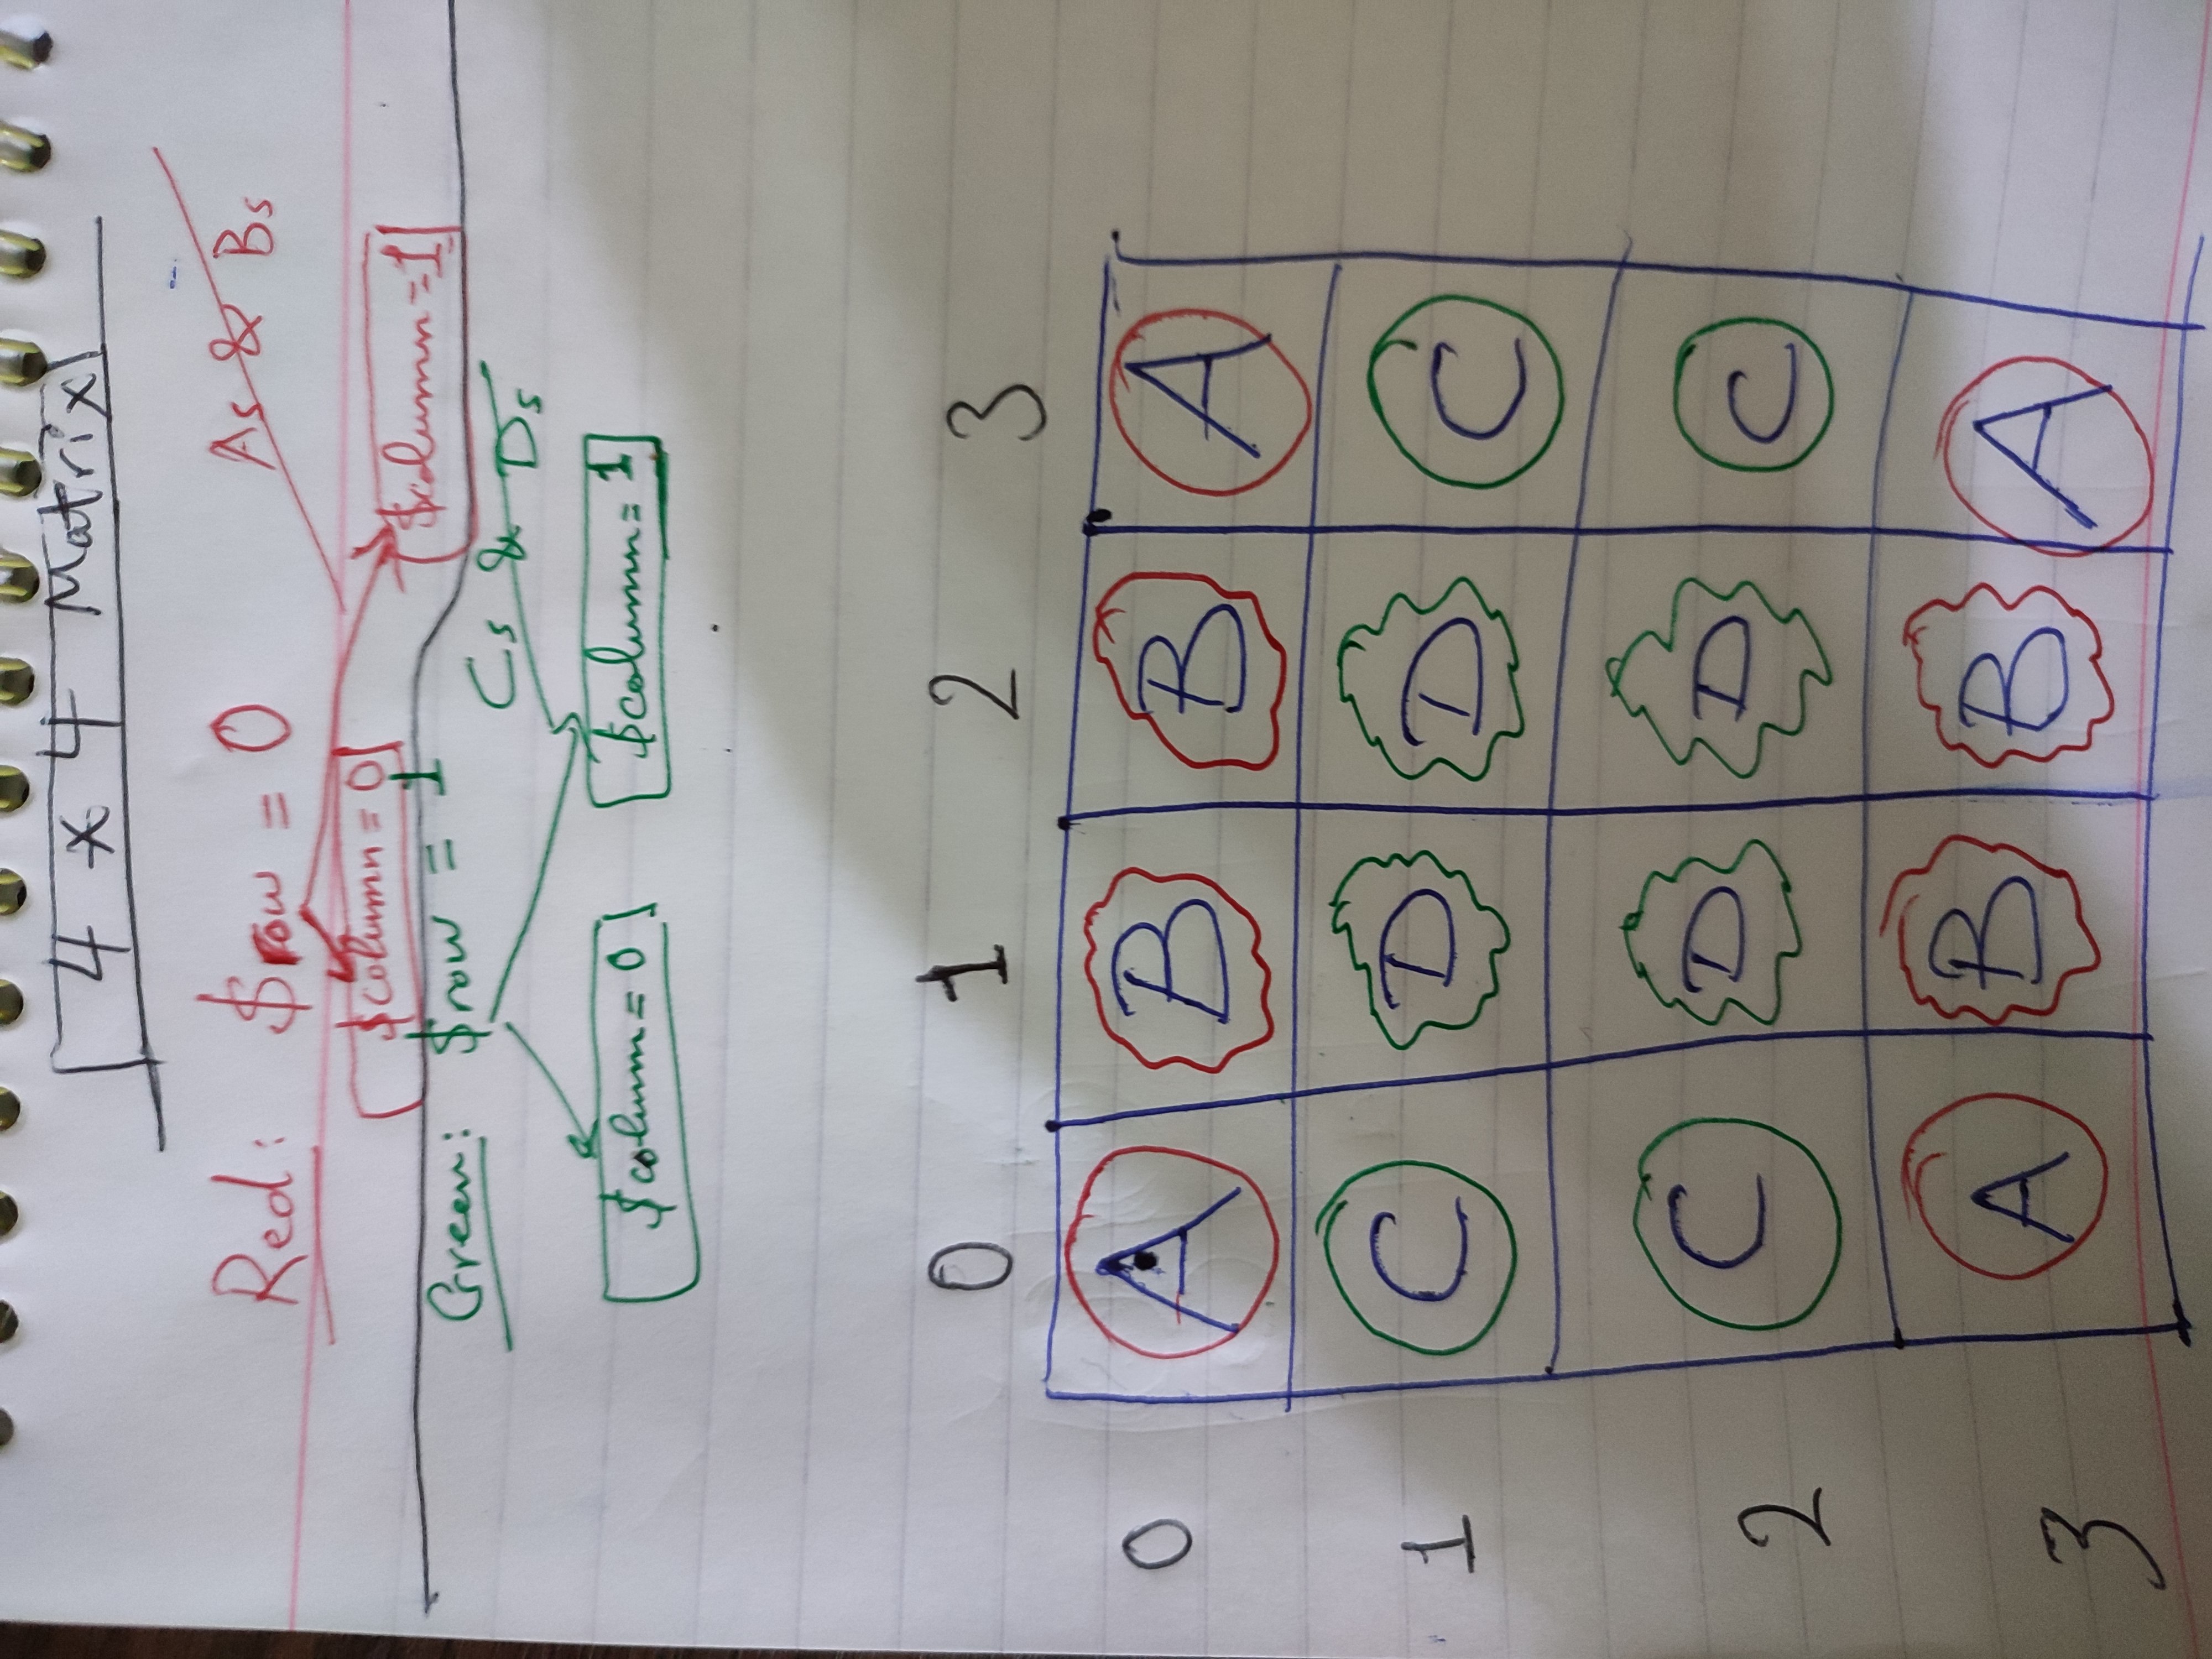 4 x 4 Matrix
Red: $row = 0 As & Bs
$column = 0 $column = 1
Green: $row = 1 Cs & Ds
$column = 0 $column = 1
0 1 2 3
0 A B B A
1 C D D C
2 C D D C
3 A B B A